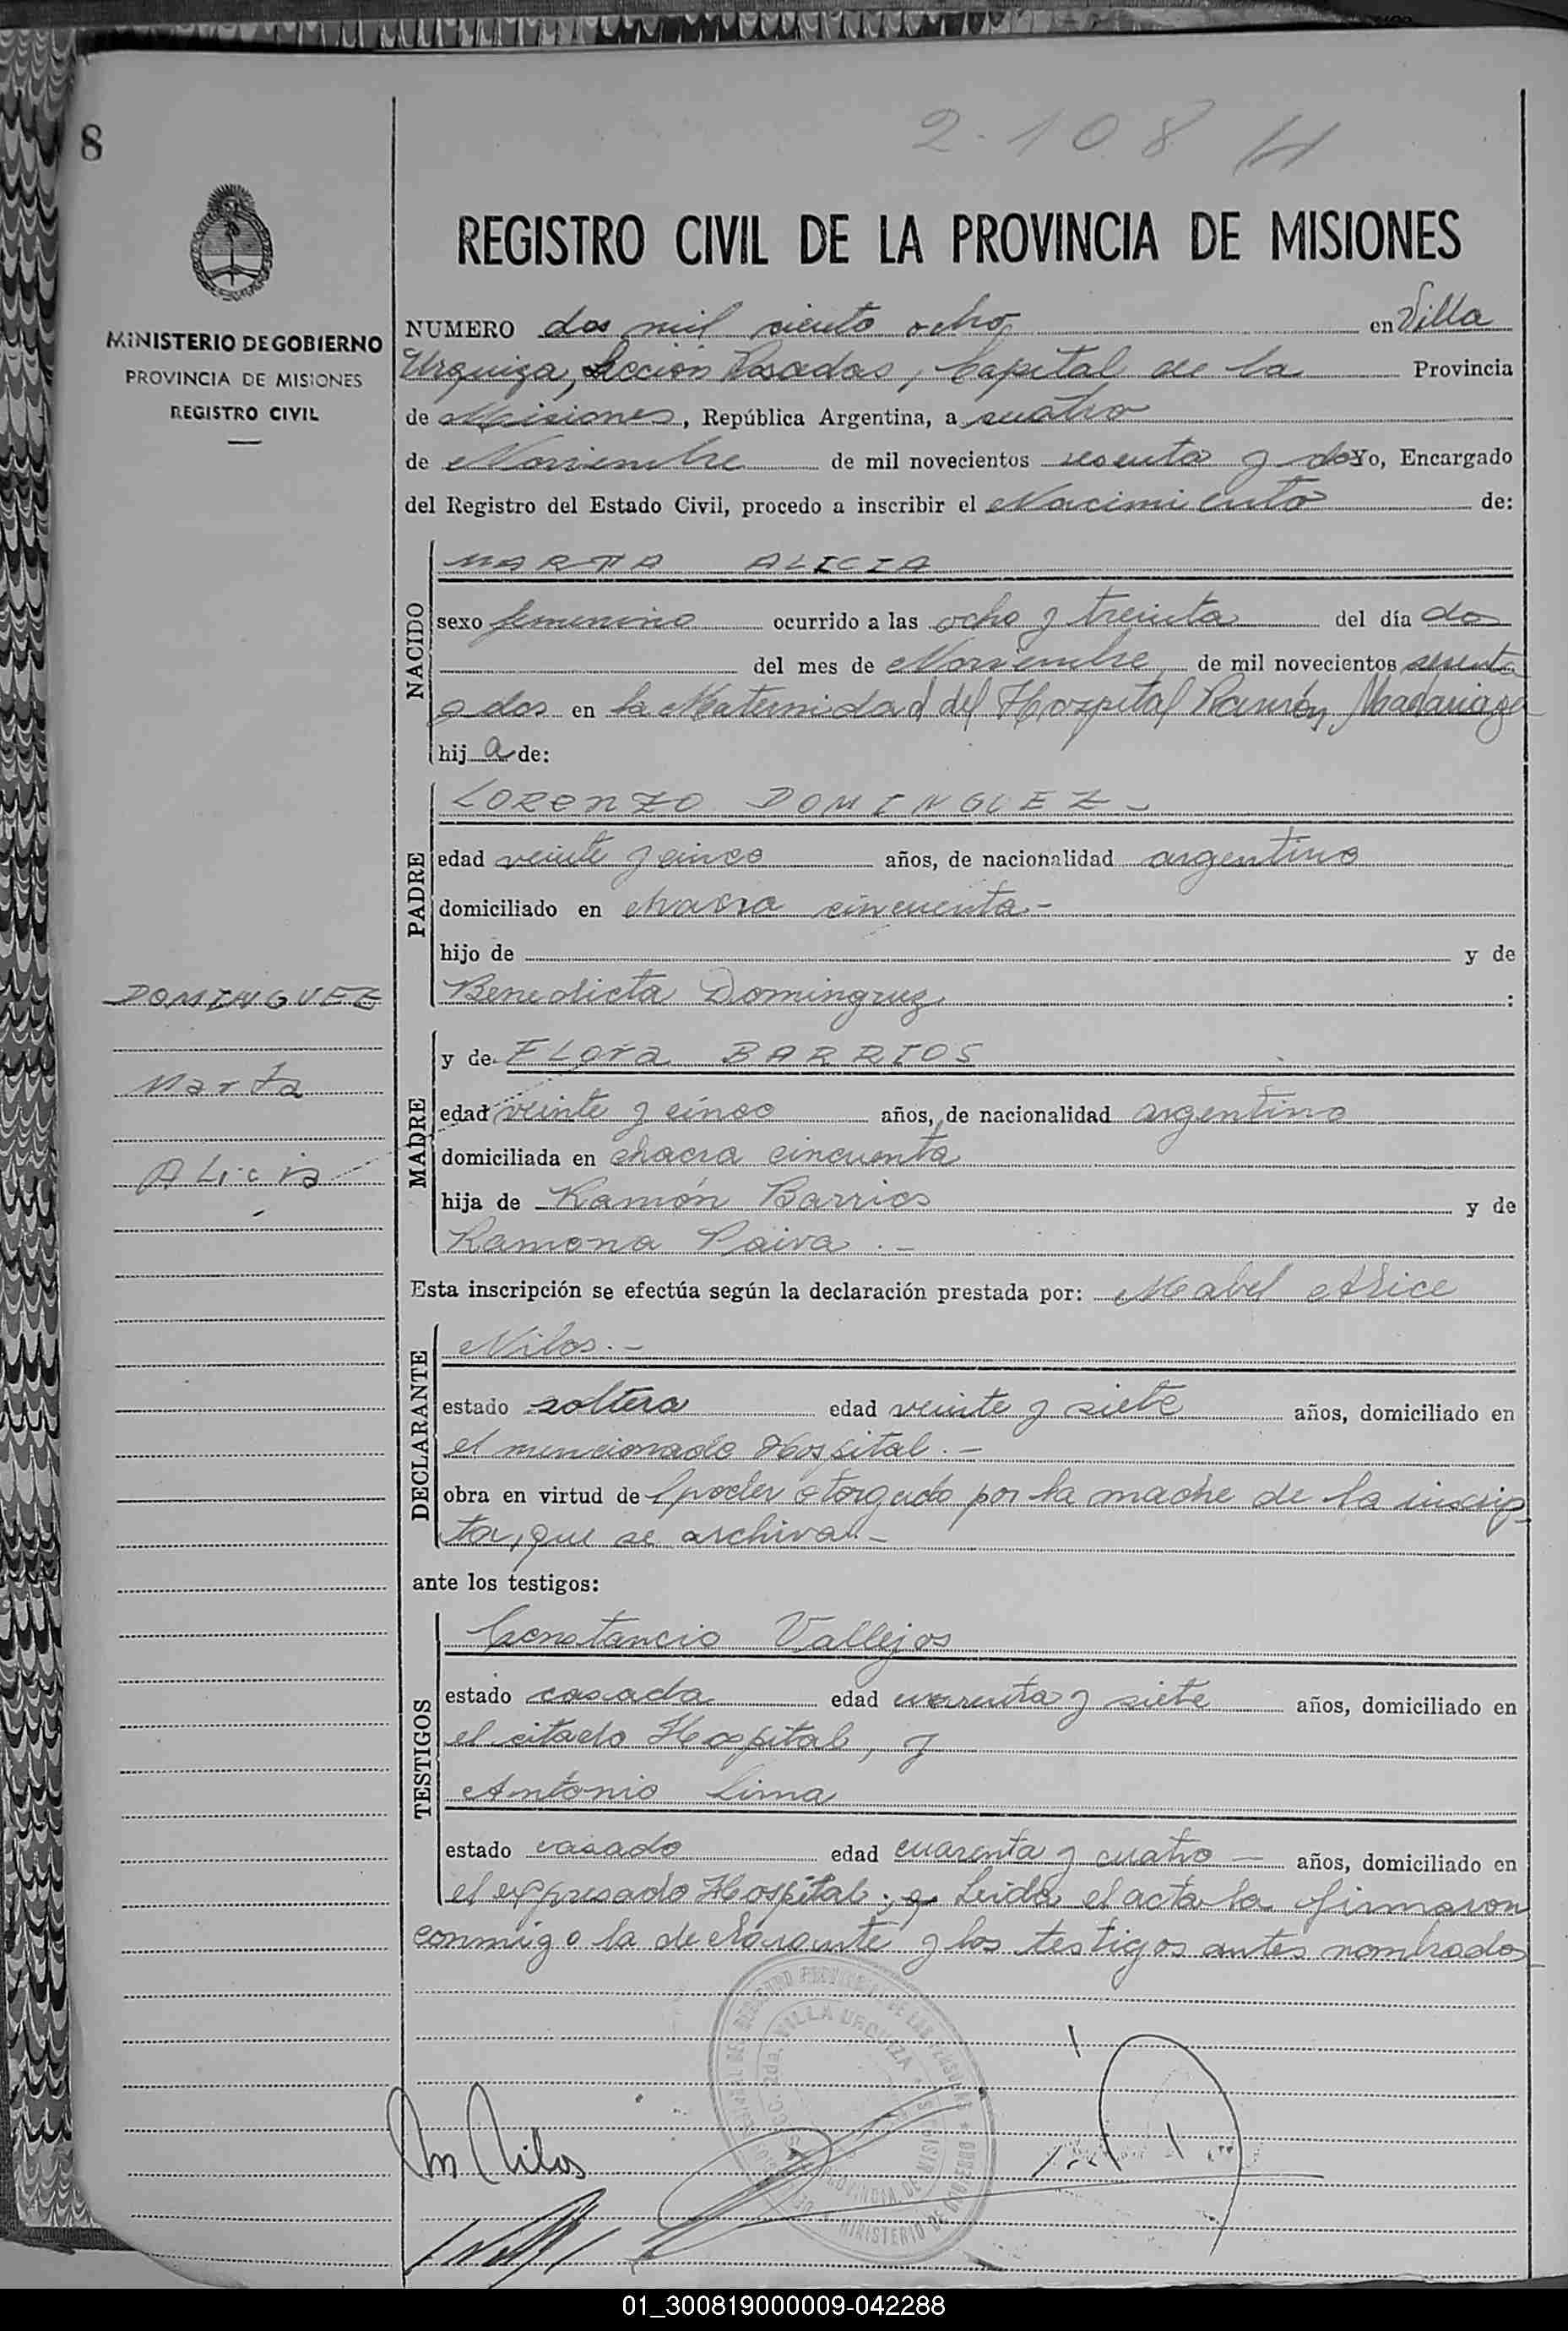 8
2-108 H
REGISTRO CIVIL DE LA PROVINCIA DE MISIONES
MINISTERIO DE GOBIERNO
PROVINCIA DE MISIONES
REGISTRO CIVIL
NUMERO dos mil ciento ocho en Villa
Urquiza, Sección Posadas, Capital de la Provincia
de Misiones, República Argentina, a cuatro
de Noviembre de mil novecientos sesenta y dos Yo, Encargado
del Registro del Estado Civil, procedo a inscribir el Nacimiento de:
NACIDO
MARTA ALICIA
sexo femenino ocurrido a las ocho y treinta del día dos
del mes de Noviembre de mil novecientos sesenta
y dos en la Maternidad del Hospital Ramón Madariaga
hij a de:
PADRE
LORENZO DOMINGUEZ -
edad veinte y cinco años, de nacionalidad argentino
domiciliado en chacra cincuenta.-
hijo de y de
Benedicta Dominguez :
DOMINGUEZ
Marta
Alicia
MADRE
y de FLORA BARRIOS
edad veinte y cinco años, de nacionalidad argentina
domiciliada en chacra cincuenta
hija de Ramón Barrios y de
Ramona Paiva .-
Esta inscripción se efectúa según la declaración prestada por: Mabel Alice
DECLARANTE
Nilos.-
estado soltera edad veinte y siete años, domiciliado en
el mencionado Hospital.-
obra en virtud de l poder otorgado por la madre de la inscrip-
ta, que se archiva.-
ante los testigos:
TESTIGOS
Constancio Vallejos
estado casada edad cuarenta y siete años, domiciliado en
el citado Hospital, y
Antonio Lima
estado casado edad cuarenta y cuatro — años, domiciliado en
el expresado Hospital; y Leida el acta la firmaron
conmigo la declarante y los testigos antes nombrados
VILLA URQUIZA
PROVINCIA DE MISIONES
MINISTERIO DE GOBIERNO
M Nilos
01_300819000009-042288